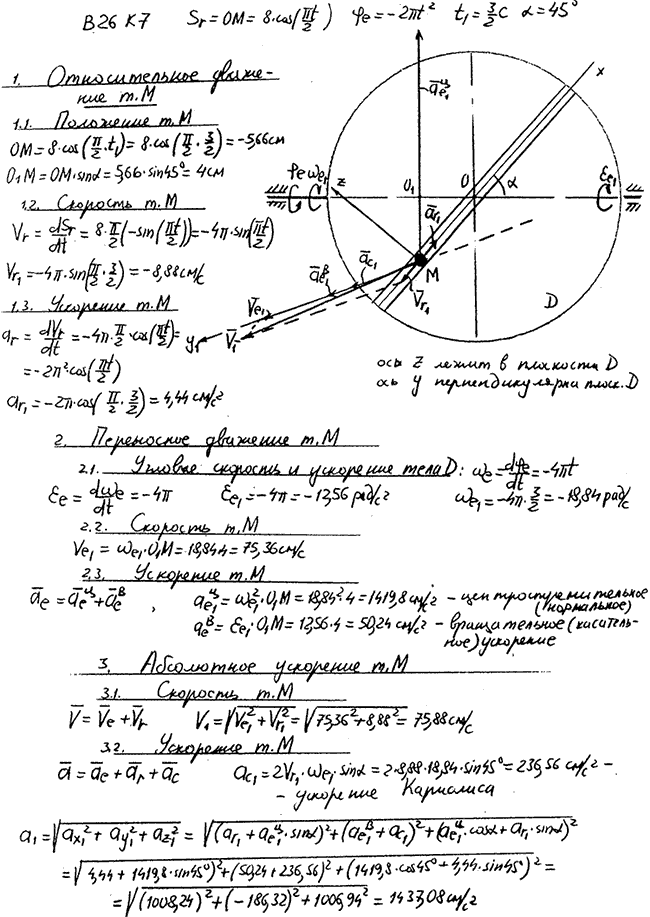 В26 К7 Sr = OM = 8·cos(πt/2) φe = -2πt² t₁ = 3/2 c α = 45°
1. Относительное движе-
ние т.М
1.1. Положение т.М
OM = 8·cos(π/2·t₁) = 8·cos(π/2·3/2) = -5,66 см
O₁M = OM·sinα = 5,66·sin45° = 4 см
1.2. Скорость т.М
Vr = dSr/dt = 8·π/2(-sin(πt/2)) = -4π·sin(πt/2)
Vr₁ = -4π·sin(π/2·3/2) = -8,88 см/с
1.3. Ускорение т.М
ar = dVr/dt = -4π·π/2·cos(πt/2) =
= -2π²cos(πt/2)
ar₁ = -2π·cos(π/2·3/2) = 4,44 см/с²
āe₁ц
x
φe ωe₁ z O₁ O α εe₁
ār₁
āeв āc₁ M
V̄e₁ V̄r₁ D
y₁ V̄₁
ось z лежит в плоскости D
ось y перпендикулярна плоск. D
2. Переносное движение т.М
2.1. Угловые скорость и ускорение тела D: ωe = dφe/dt = -4πt
εe = dωe/dt = -4π εe₁ = -4π = -12,56 рад/с² ωe₁ = -4π·3/2 = -18,84 рад/с
2.2. Скорость т.М
Ve₁ = ωe₁·O₁M = 18,84·4 = 75,36 см/с
2.3. Ускорение т.М
āe = āeц + āeв , ae₁ц = ωe₁²·O₁M = 18,84²·4 = 1419,8 см/с² - центростремительное
(нормальное)
aeв = εe₁·O₁M = 12,56·4 = 50,24 см/с² - вращательное (касатель-
ное) ускорение
3. Абсолютное ускорение т.М
3.1. Скорость т.М
V̄ = V̄e + V̄r V₁ = √(Ve₁² + Vr₁²) = √(75,36² + 8,88²) = 75,88 см/с
3.2. Ускорение т.М
ā = āe + ār + āc ac₁ = 2Vr₁·ωe₁·sinα = 2·8,88·18,84·sin45° = 236,56 см/с² -
- ускорение Кариолиса
a₁ = √(ax₁² + ay₁² + az₁²) = √((ar₁ + ae₁ц·sinα)² + (ae₁в + ac₁)² + (ae₁ц·cosα + ar₁·sinα)²)
= √((4,44 + 1419,8·sin45°)² + (50,24 + 236,56)² + (1419,8·cos45° + 4,44·sin45°)²) =
= √((1008,24)² + (-186,32)² + 1006,94²) = 1437,08 см/с²